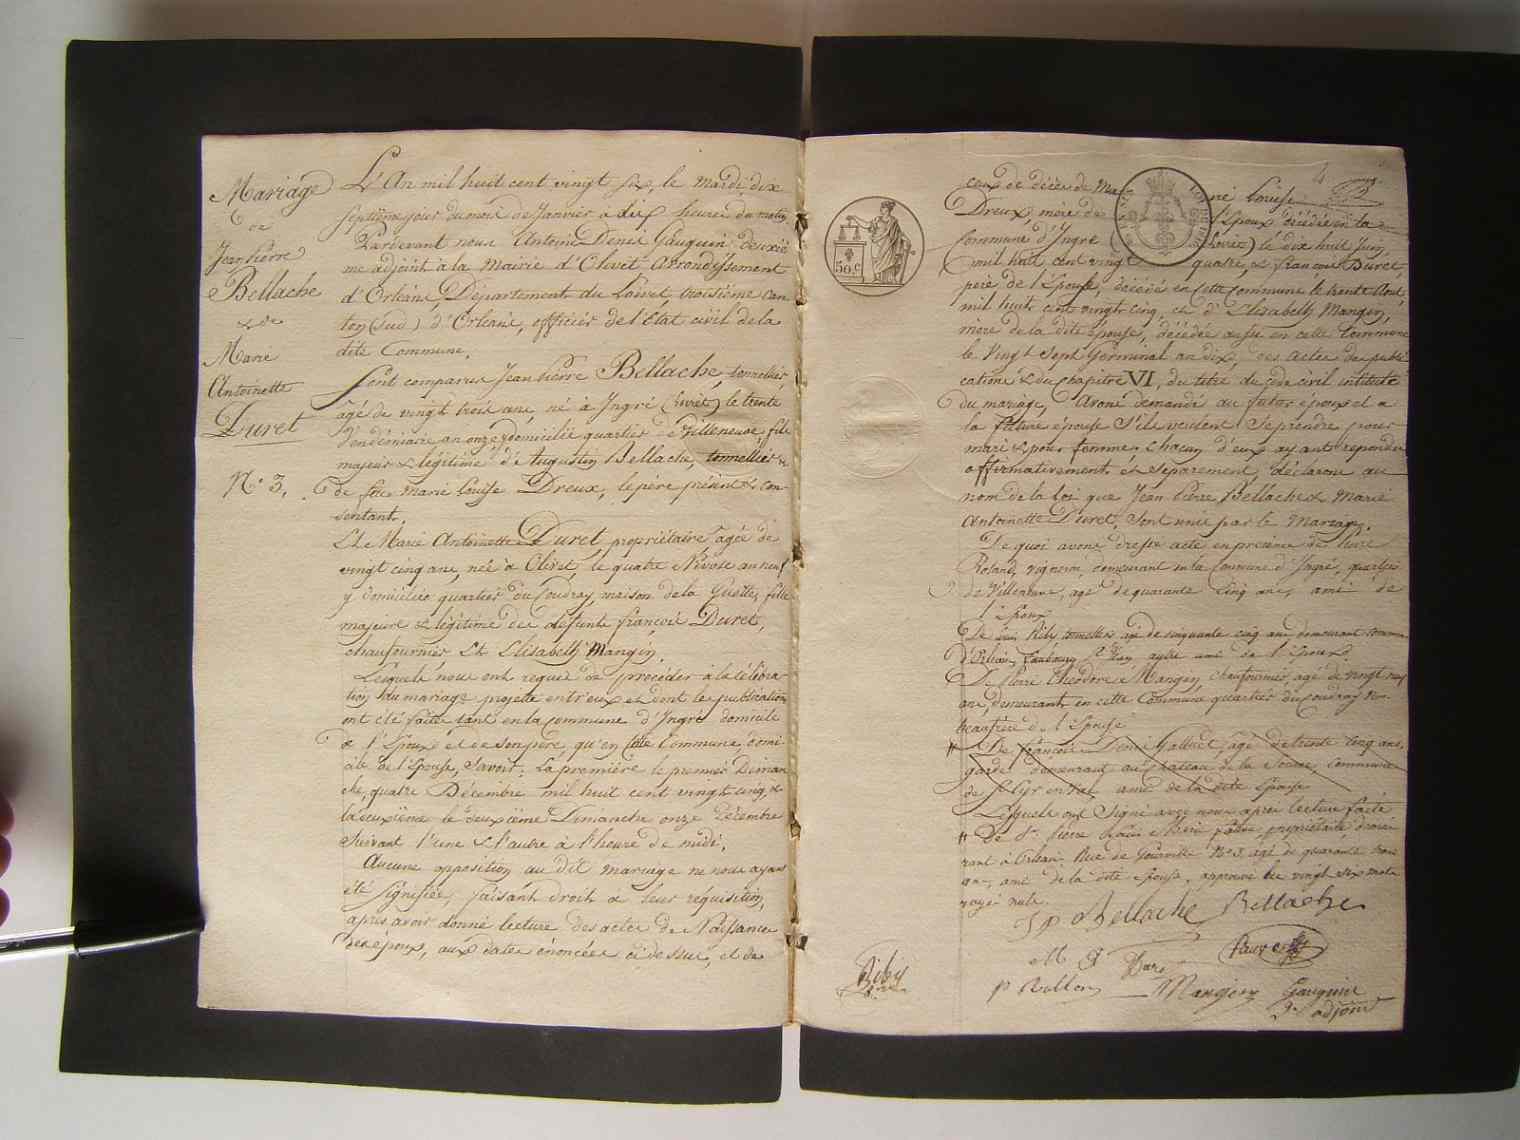 Mariage
De
Jean Pierre
Bellache
& de
Marie
Antoinette
Duret
N.° 3.
L'An mil huit cent vingt six, le mardi dix
septième jour du mois de Janvier à dix heures du matin
Pardevant nous Antoine Denis Gauguin deuxiè
me adjoint à la Mairie d'Olivet Arrondissement
d'Orléans, Département du Loiret, troisième can
ton (sud) d'Orléans, officier de l'Etat civil de la
dite Commune.
Sont comparus Jean Pierre Bellache, tonnellier,
âgé de vingt trois ans, né à Ingré (Loiret) le trente
Vendémiaire an onze, y domicilié quartier de Villeneuve fils
majeur & légitime d'Augustin Bellache, tonnellier &
de feue Marie Louise Dreux, le père présent & con-
sentant.
Et Marie Antoinette Duret propriétaire âgée de
vingt cinq ans, née à Olivet, le quatre Nivôse an neuf
y domiciliée quartier du Coudray maison de la fille
majeure & légitime des défunts françois Duret,
chaufournier Et Elisabeth Mangin.
Lesquels nous ont requis de procéder à la célébra
tion du mariage projetté entr'eux et dont les publications
ont été faites tant en la commune d'Ingré domicile
de l'Epoux et de son père, qu'en cette Commune, domi-
cile de l'Epouse, Savoir: la première le premier Diman
che, quatre Décembre mil huit cent vingt cinq, &
la deuxième le deuxième Dimanche onze Décembre
suivant l'une & l'autre à l'heure de midi.
Aucune opposition au dit mariage ne nous ayant
été signifiée, faisant droit à leur réquisition,
après avoir donné lecture des actes de Naissance
des époux, aux dates énoncées ci dessus, et de
4
ceux de décès de Marie Louise
Dreux, mère de l'Epoux décédée en la
Commune d'Ingré (Loiret) le dix huit Juin
mil huit cent vingt quatre, & françois Duret,
père de l'Epouse, décédé en cette Commune le trente Aout
mil huit cent vingt cinq, et d'Elisabeth Mangin,
mère de la dite épouse, décédée aussi en cette Commune
le vingt sept Germinal an dix, des actes de publi
cations & du chapitre VI, du titre du code civil intitulé
du mariage, Avons demandé au futur époux et a
la future épouse s'ils veulent se prendre pour
mari & pour femme; chacun d'eux ayant répondu
affirmativement et séparément, déclarons au
nom de la loi que Jean Pierre Bellache & Marie
Antoinette Duret, sont unis par le mariage.
De quoi avons dressé acte en présence de Pierre
vigneron, demeurant en la Commune d'Ingré, quartier
de Villeneuve, âgé de quarante cinq ans, ami de
l'Epoux
De Riby tonnellier âgé de cinquante cinq ans demeurant commune
d'Orléans, faubourg St Jean, autre ami de l'Epoux.
De Pierre Théodore Mangin chaufournier, âgé de vingt neuf
ans, demeurant en cette Commune quartier du Coudray
beaufrère de l'Epouse
# De françois Denis Galliet, âgé de trente cinq ans,
garde demeurant au chateau de la Source, commune
de St Cyr en Val ami de la dite Epouse
Lesquels ont signé avec nous après lecture faite
# De Sr. Pierre propriétaire demeu
rant à Orléans Rue de Gourville N.° 3, âgé de quarante trois
ans, ami de la dite épouse, approuvé les vingt six mots
rayés nuls.
50.c
J P Bellache Bellache
M A Duret
Riby
Mangin Gauguin
2e adjoint